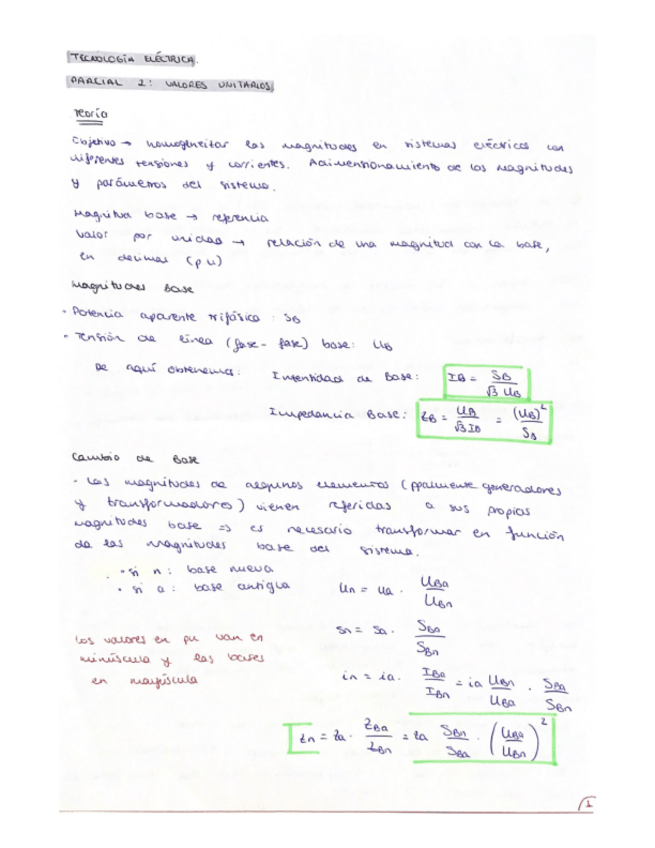 TECNOLOGÍA ELÉCTRICA.
PARCIAL 2: VALORES UNITARIOS
Teoría
Objetivo → homogeneizar las magnitudes en sistemas eléctricos con
diferentes tensiones y corrientes. Adimensionamiento de las magnitudes
y parámetros del sistema.
Magnitud base → referencia
Valor por unidad → relación de una magnitud con la base,
en decimal (pu)
Magnitudes Base
- Potencia aparente trifásica : SB
- Tensión de línea (fase-fase) base: UB
De aquí obtenemos: Intensidad de Base: IB = SB / √3 UB
Impedancia Base: ZB = UB / √3 IB = (UB)² / SB
Cambio de Base
- Las magnitudes de algunos elementos (ppalmente generadores
y transformadores) vienen referidas a sus propias
magnitudes base => es necesario transformar en función
de las magnitudes base del sistema.
• si n: base nueva
• si a: base antigua
un = ua · UBa / UBn
sn = sa · SBa / SBn
in = ia · IBa / IBn = ia UBn / UBa · SBa / SBn
zn = za · ZBa / ZBn = za SBn / SBa · (UBa / UBn)²
Los valores en pu van en
minúscula y las bases
en mayúscula
1